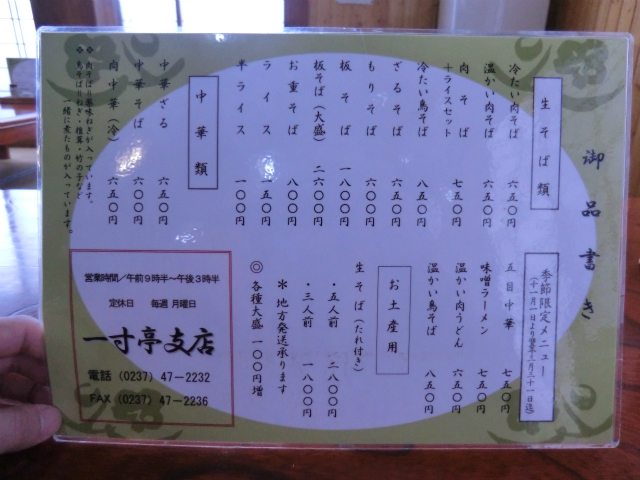 御品書き
生そば類
冷たい肉そば 六五〇円
温かい肉そば 六五〇円
肉そば
+ライスセット 七五〇円
冷たい鳥そば 八五〇円
ざるそば 六五〇円
もりそば 六〇〇円
板そば 一八〇〇円
板そば(大盛) 二六〇〇円
お重そば 八〇〇円
ライス 一五〇円
半ライス 一〇〇円
中華類
中華ざる 六五〇円
中華そば 六〇〇円
肉中華(冷) 六五〇円
※肉そば=薬味ねぎが入っています。
※鳥そば=ねぎ・椎茸・竹の子など
一緒に煮たものが入っています。
季節限定メニュー
(十一月一日より翌年三月三十一日迄)
五目中華 七五〇円
味噌ラーメン 七五〇円
温かい肉うどん 六五〇円
温かい鳥そば 八五〇円
お土産用
生そば(たれ付き)
・五人前 二八〇〇円
・三人前 一八〇〇円
※地方発送承ります
◎各種大盛 一〇〇円増
営業時間/午前9時半〜午後3時半
定休日 毎週 月曜日
一寸亭支店
電話 (0237) 47-2232
FAX (0237) 47-2236